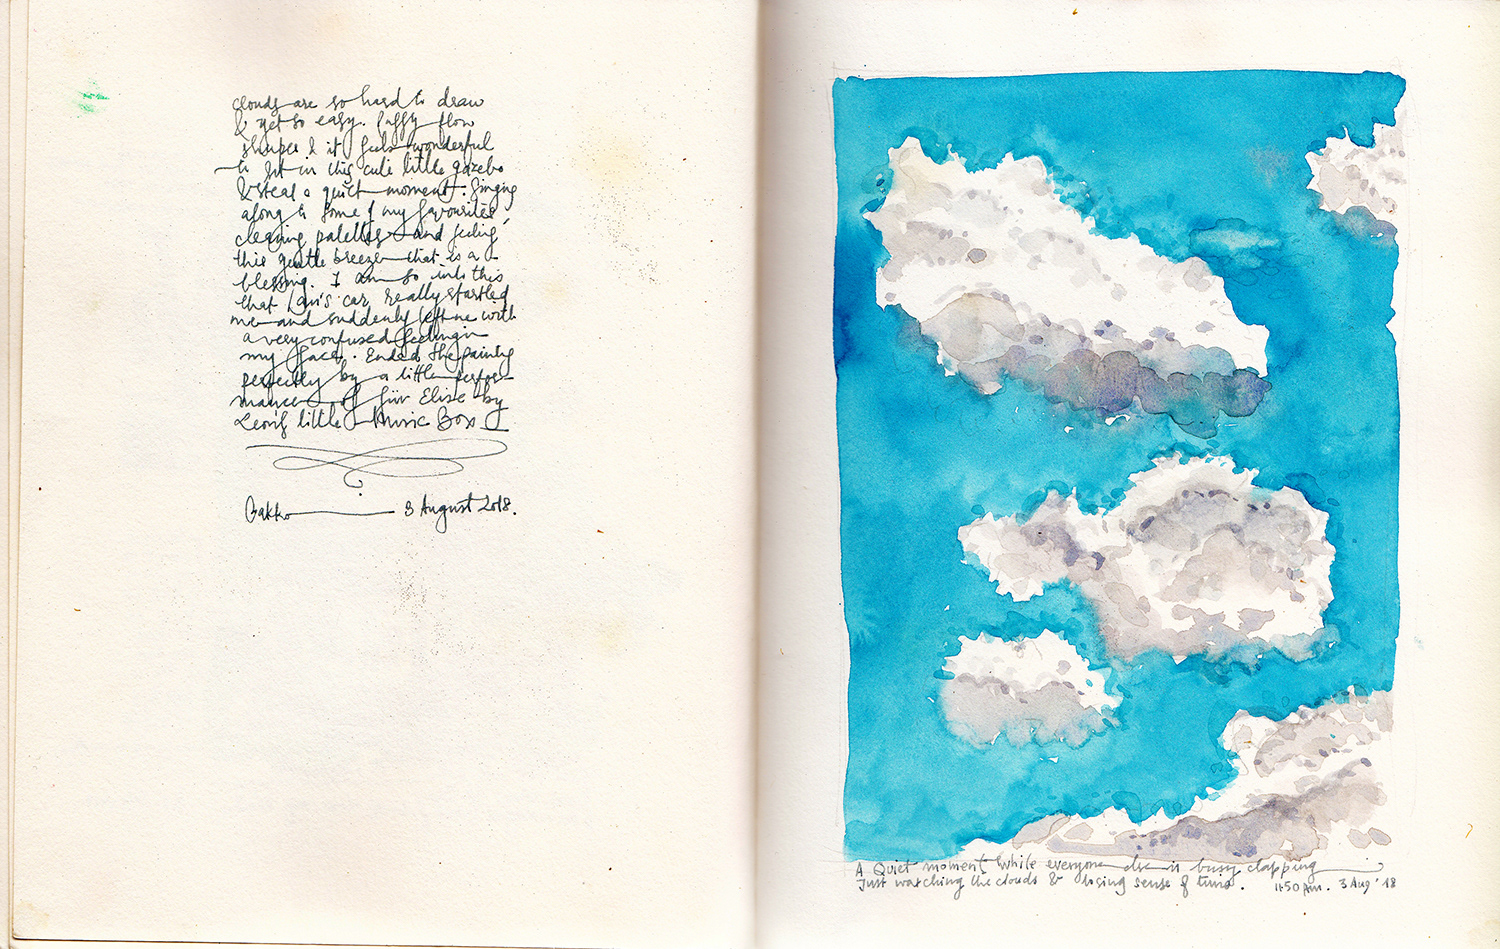 clouds are so hard to draw
& yet so easy. Puffy flow
shapes & it feels wonderful
to sit in this cute little gazebo
& steal a quiet moment. Singing
along to some of my favourites,
cleaning palettes and feeling
this gentle breeze that is a
blessing. I am so into this
that car really startled
me and suddenly left me with
a very confused feeling in
my face. Ended the painting
perfectly by a little perfor-
mance of für Elise by
Leon's little Music Box
3 August 2018.
A Quiet moment while everyone else is busy clapping
Just watching the clouds & losing sense of time. 3 Aug '18